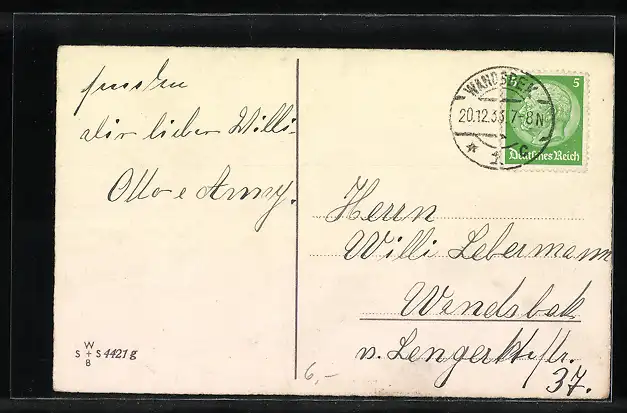 senden
dir lieber Willi.
Otto e Anny.
S W+8 S 4421 g
WANDSBEK
20.12.33. 7-8 N
* 1 c
5
Deutsches Reich
Herrn
Willi Lebermann
Wandsbek
v. Lengerkestr.
37.
6,-